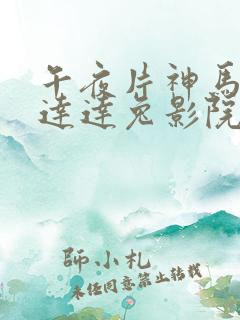 午夜片神馬
達達兔影院
師小札
未經同意禁止轉載